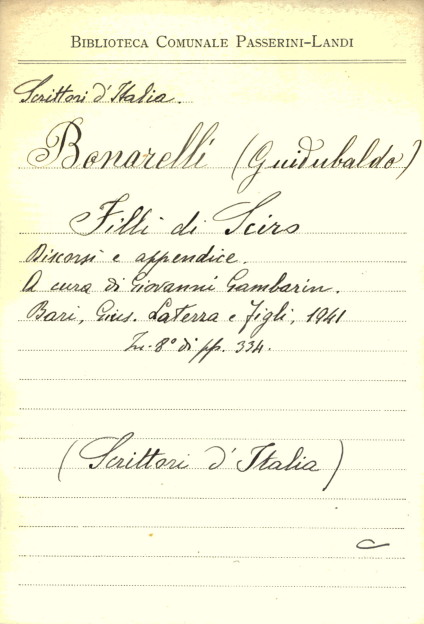 BIBLIOTECA COMUNALE PASSERINI-LANDI
Scrittori d'Italia.
Bonarelli (Guidubaldo)
Filli di Sciro
Discorsi e appendice.
A cura di Giovanni Gambarin.
Bari, Gius. Laterza e figli, 1941
In-8º di pp. 334.
(Scrittori d'Italia)